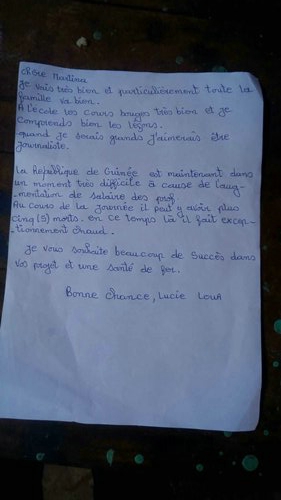 chère Martina
Je vais très bien et particulièrement toute la
famille va bien.
À l'ecole les cours bouges très bien et je
comprends bien les leçons.
-quand je serais grands j'aimerais être
journaliste.
La Republique de Guinée est maintenant dans
un moment très difficile à cause de l'aug-
-mentation de salaire des prof.
Au cours de la journée il peut y avoir plus
cinq (5) morts. en ce temps là il fait excep-
-tionnement chaud.
Je vous souhaite beaucoup de succès dans
vos projet et une santé de fer.
Bonne chance, Lucie Loua